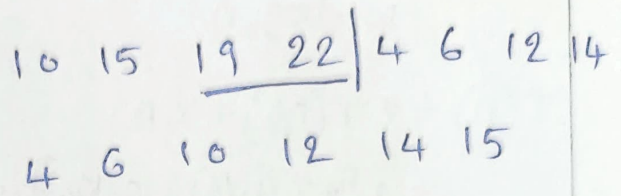 10 15 19 22 | 4 6 12 14
4 6 10 12 14 15